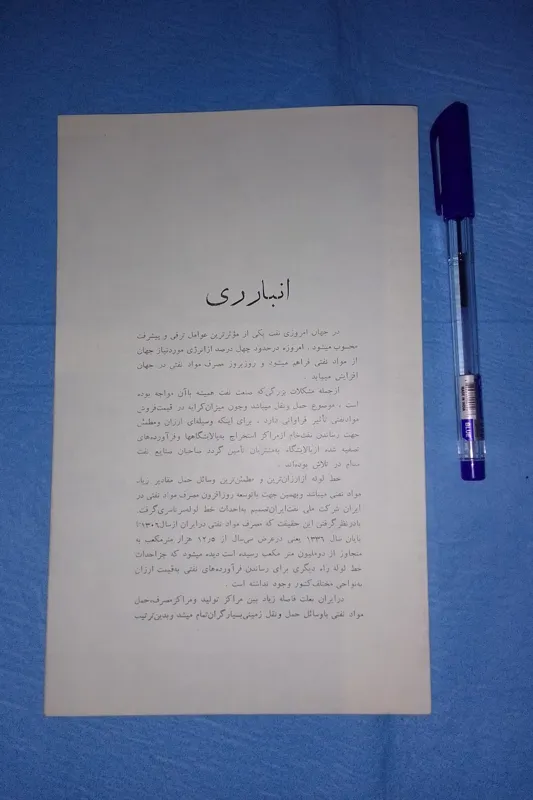 انبار ری
در جهان امروزی نفت یکی از مؤثرترین عوامل ترقی و پیشرفت
محسوب میشود . امروزه درحدود چهل درصد ازانرژی موردنیاز جهان
از مواد نفتی فراهم میشود و روزبروز مصرف مواد نفتی در جهان
افزایش مییابد .
ازجمله مشکلات بزرگی‌که صنعت نفت همیشه باآن مواجه بوده
است ، موضوع حمل ونقل میباشد وچون میزان‌کرایه در قیمت‌فروش
موادنفتی تأثیر فراوانی دارد . برای اینکه وسیله‌ای ارزان ومطمئن
جهت رساندن نفت‌خام ازمراکز استخراج به‌پالایشگاهها وفرآورده‌های
تصفیه شده ازپالایشگاه به‌مشتریان تأمین گردد صاحبان صنایع نفت
مدام در تلاش بوده‌اند .
خط لوله ازارزان‌ترین و مطمئن‌ترین وسائل حمل مقادیر زیاد
مواد نفتی میباشد وبهمین جهت باتوسعه روزافزون مصرف مواد نفتی در
ایران شرکت ملی نفت‌ایران‌تصمیم به‌احداث خط لوله‌سرتاسری‌گرفت.
بادرنظرگرفتن این حقیقت که مصرف مواد نفتی درایران ازسال۱۳۰۶تا
پایان سال ۱۳۳۶ یعنی درعرض سی‌سال از ۱۲٫۵ هزار مترمکعب به
متجاوز از دومیلیون متر مکعب رسیده است دیده میشود که جزاحداث
خط لوله راه دیگری برای رساندن فرآورده‌های نفتی به‌قیمت ارزان
به‌نواحی مختلف‌کشور وجود نداشته است .
درایران بعلت فاصله زیاد بین مراکز تولید ومراکزمصرف،حمل
مواد نفتی باوسائل حمل ونقل زمینی‌بسیارگران‌تمام میشد وبدین‌ترتیب
BLUE